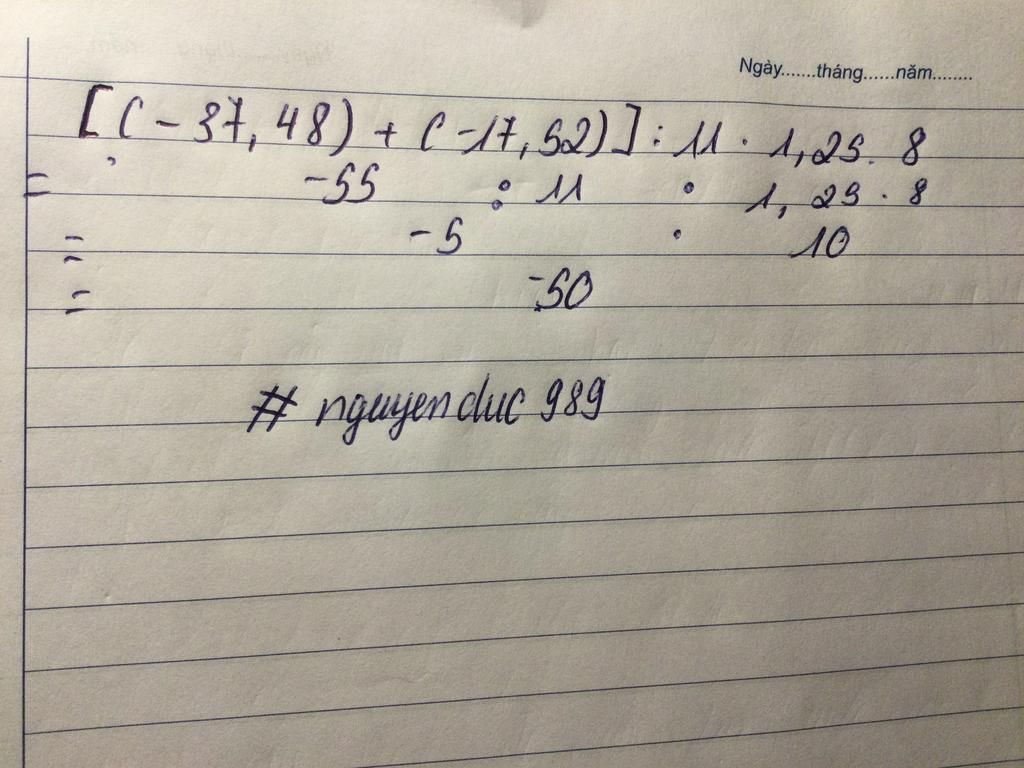 Ngày.......tháng......năm........
[(-37,48) + (-17,52)] : 11 . 1,25. 8
= -55 : 11 . 1,25 . 8
= -5 . 10
= -50
# nguyenduc 989